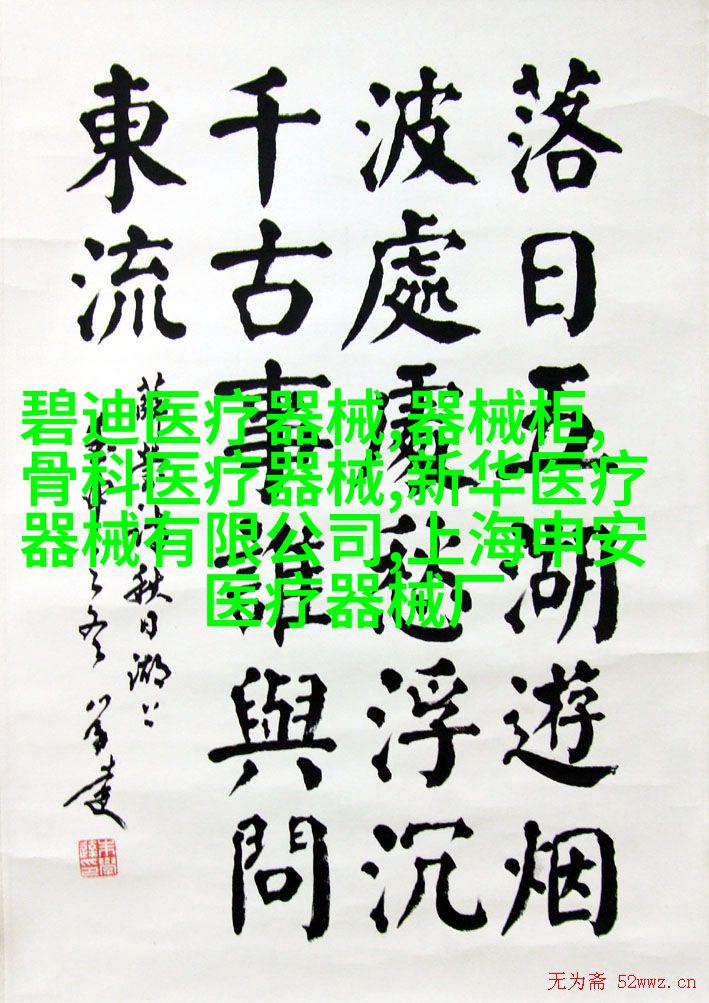 落日五湖遊烟
波處處愁浮沉
千古事誰與問
東流
薛瑩詩秋日湖上
之冬
碧迪医疗器械,器械柜,
骨科医疗器械,新华医疗
器械有限公司,上海申安
医疗器械厂
无为斋 52wwz.cn